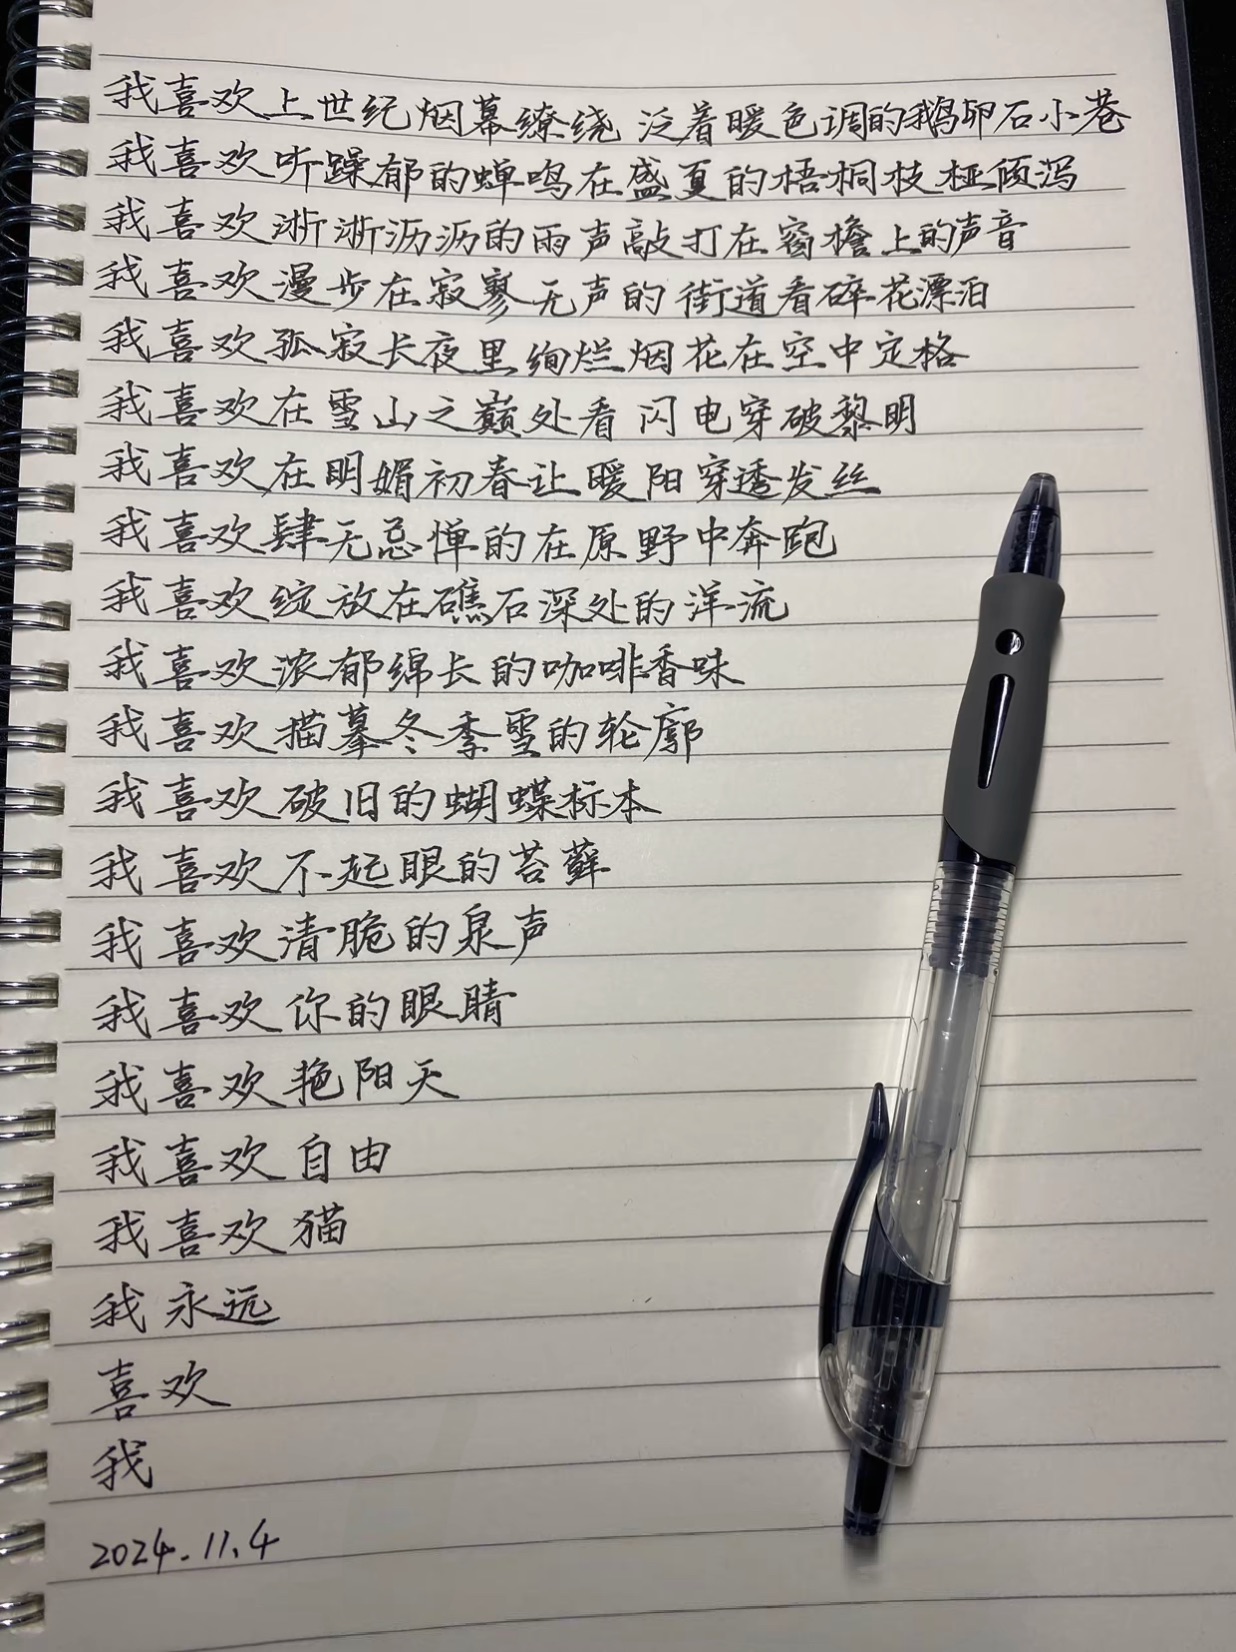 我喜欢上世纪烟幕缭绕 泛着暖色调的鹅卵石小巷
我喜欢听躁郁的蝉鸣在盛夏的梧桐枝桠倾泻
我喜欢淅淅沥沥的雨声敲打在窗檐上的声音
我喜欢漫步在寂寥无声的街道看碎花漂泊
我喜欢孤寂长夜里绚烂烟花在空中定格
我喜欢在雪山之巅处看闪电穿破黎明
我喜欢在明媚初春让暖阳穿透发丝
我喜欢肆无忌惮的在原野中奔跑
我喜欢绽放在礁石深处的洋流
我喜欢浓郁绵长的咖啡香味
我喜欢描摹冬季雪的轮廓
我喜欢破旧的蝴蝶标本
我喜欢不起眼的苔藓
我喜欢清脆的泉声
我喜欢你的眼睛
我喜欢艳阳天
我喜欢自由
我喜欢猫
我永远
喜欢
我
2024.11.4